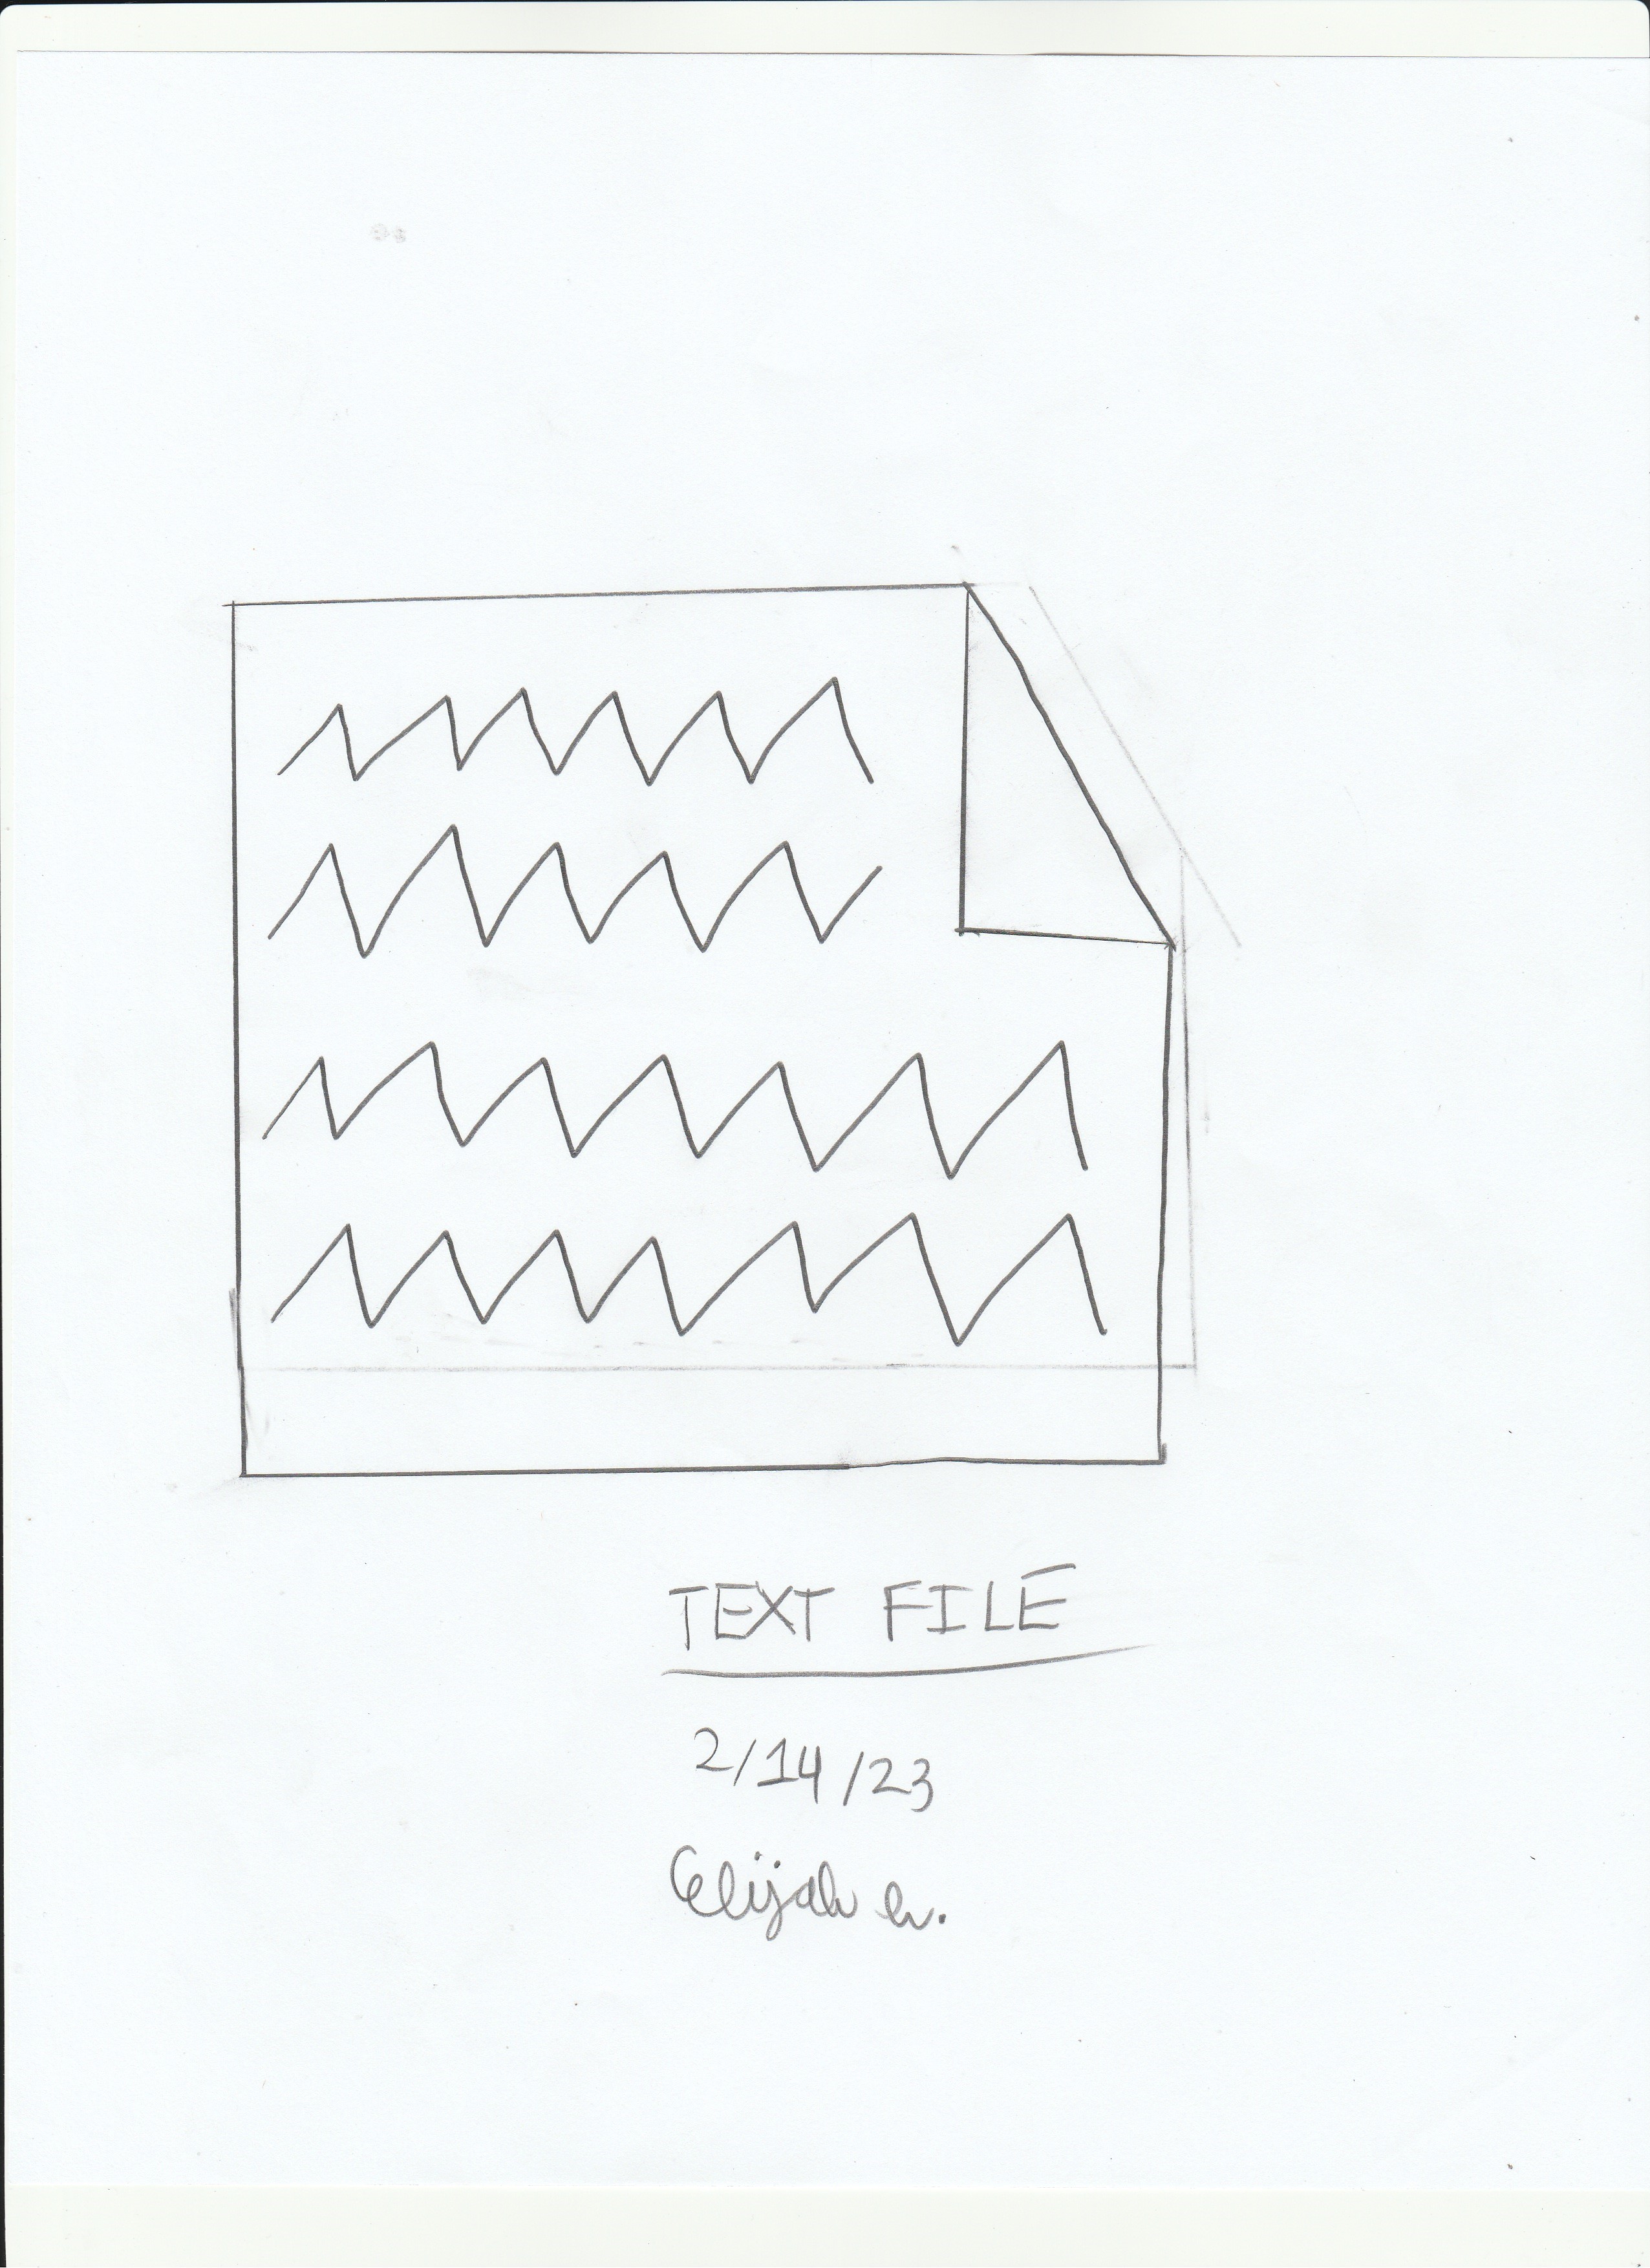 TEXT FILE
2/14/23
Elijah